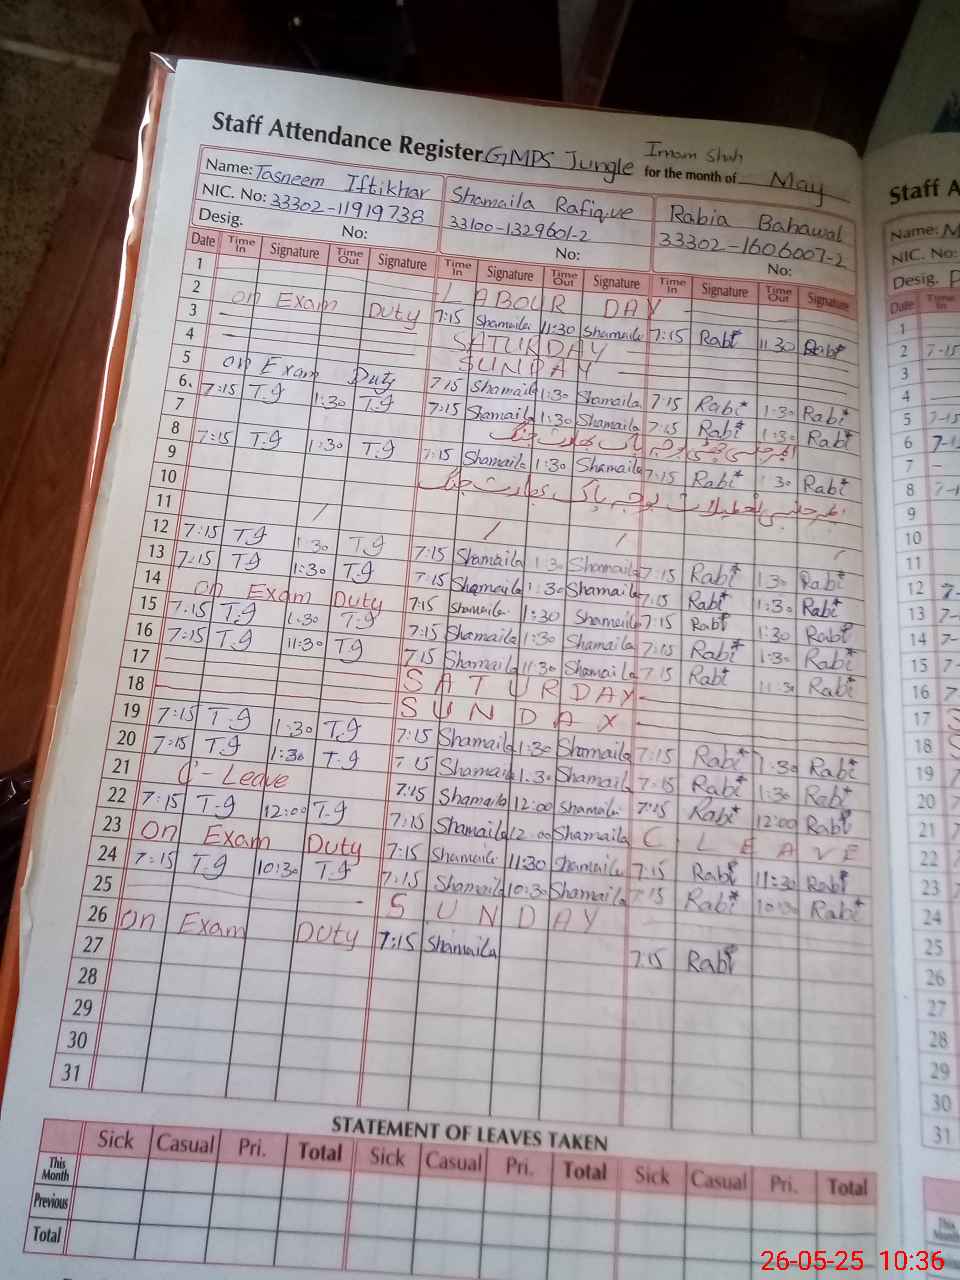 Staff Attendance Register GMPS Jungle Imam Shah for the month of May
Name: Tasneem Iftikhar Shamaila Rafique Rabia Bahawal
NIC. No: 33302-11919738 33100-1329601-2 33302-1606007-2
Desig. No: No: No:
Date Time In Signature Time Out Signature Time In Signature Time Out Signature Time In Signature Time Out Signature
1 LABOUR DAY
2 on Exam Duty 7:15 Shamaila 11:30 Shamaila 7:15 Rabi 11:30 Rabi
3 SATURDAY
4 SUNDAY
5 on Exam Duty 7:15 Shamaila 1:30 Shamaila 7:15 Rabi 1:30 Rabi
6 7:15 T.I 1:30 T.I 7:15 Shamaila 1:30 Shamaila 7:15 Rabi 1:30 Rabi
7
8 7:15 T.I 1:30 T.I 7:15 Shamaila 1:30 Shamaila 7:15 Rabi 1:30 Rabi
9
10
11
12 7:15 T.I 1:30 T.I 7:15 Shamaila 1:30 Shamaila 7:15 Rabi 1:30 Rabi
13 7:15 T.I 1:30 T.I 7:15 Shamaila 1:30 Shamaila 7:15 Rabi 1:30 Rabi
14 on Exam Duty 7:15 Shamaila 1:30 Shamaila 7:15 Rabi 1:30 Rabi
15 7:15 T.I 1:30 T.I 7:15 Shamaila 1:30 Shamaila 7:15 Rabi 1:30 Rabi
16 7:15 T.I 11:30 T.I 7:15 Shamaila 11:30 Shamaila 7:15 Rabi 11:30 Rabi
17 SATURDAY
18 SUNDAY
19 7:15 T.I 1:30 T.I 7:15 Shamaila 1:30 Shamaila 7:15 Rabi 1:30 Rabi
20 7:15 T.I 1:30 T.I 7:15 Shamaila 1:30 Shamaila 7:15 Rabi 1:30 Rabi
21 C-Leave 7:15 Shamaila 12:00 Shamaila 7:15 Rabi 12:00 Rabi
22 7:15 T.I 12:00 T.I 7:15 Shamaila 12:00 Shamaila C. LEAVE
23 on Exam Duty 7:15 Shamaila 11:30 Shamaila 7:15 Rabi 11:30 Rabi
24 7:15 T.I 10:30 T.I 7:15 Shamaila 10:30 Shamaila 7:15 Rabi 10:30 Rabi
25 SUNDAY
26 on Exam Duty 7:15 Shamaila 7:15 Rabi
27
28
29
30
31
STATEMENT OF LEAVES TAKEN
Sick Casual Pri. Total Sick Casual Pri. Total Sick Casual Pri. Total
This Month
Previous
Total
Staff A
Name: M
NIC. No:
Desig.
Date Time In
1
2 7-15
3
4
5 7-15
6 7-1
7
8
9
10
11
12 7-
13 7-
14 7-
15 7-
16 7
17 S
18 S
19 7
20 7
21 7
22 7
23 7
24
25
26
27
28
29
30
31
This Month
Total
26-05-25 10:36